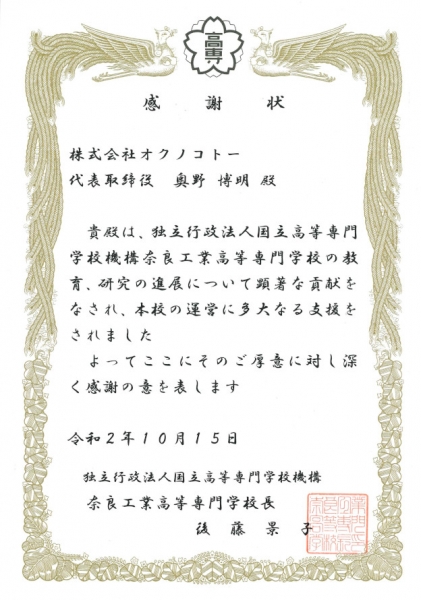 高専
感謝状
株式会社オクノコトー
代表取締役 奥野 博明 殿
貴殿は、独立行政法人国立高等専門
学校機構奈良工業高等専門学校の教
育、研究の進展について顕著な貢献を
なされ、本校の運営に多大なる支援を
されました
よってここにそのご厚意に対し深
く感謝の意を表します
令和2年10月15日
独立行政法人国立高等専門学校機構
奈良工業高等専門学校長
後藤景子